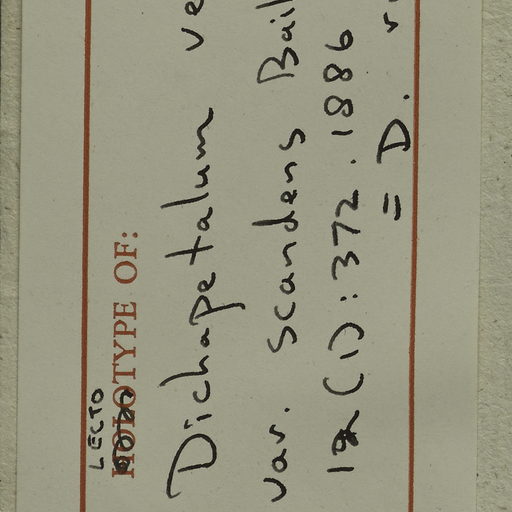 LECTO
HOLOTYPE OF:
Dichapetalum ve
var. scandens Bail
1 (1): 372. 1886
= D. v